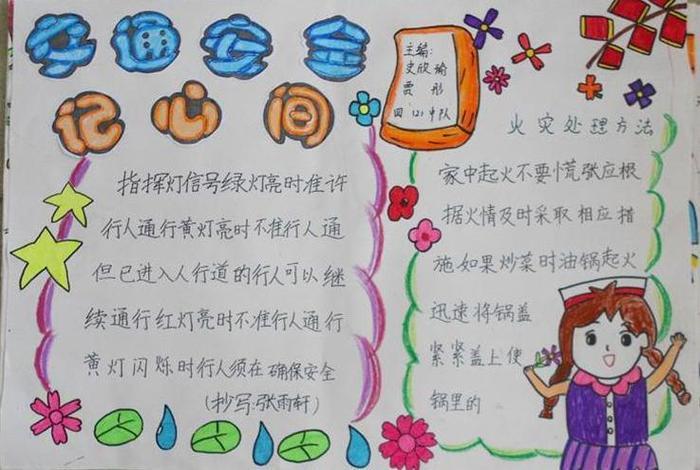 交通安全
记心间
主编:
史欣瑜
贾彤
四、121中队
指挥灯信号绿灯亮时准许
行人通行黄灯亮时不准行人通
但已进入人行道的行人可以继
续通行红灯亮时不准行人通行
黄灯闪烁时行人须在确保安全
(抄写:张雨轩)
火灾处理方法
家中起火不要慌张应根
据火情及时采取相应措
施如果炒菜时油锅起火
迅速将锅盖
紧紧盖上使
锅里的